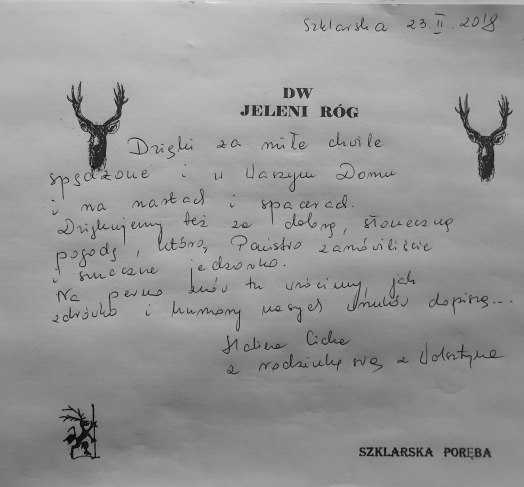 Szklarska 23.II.2018
DW
JELENI RÓG
Dzięki za miłe chwile
spędzone i w Waszym Domu
i na nartach i spacerach.
Dziękujemy też za dobrą, słoneczną
pogodę, którą Państwo zamówiliście
i smaczne jedzonko.
Na pewno znów tu wrócimy, jak
zdrówko i humory naszych wnuków dopiszą...
Halina Cicha
z rodzinką swą z Wolsztyna
SZKLARSKA PORĘBA